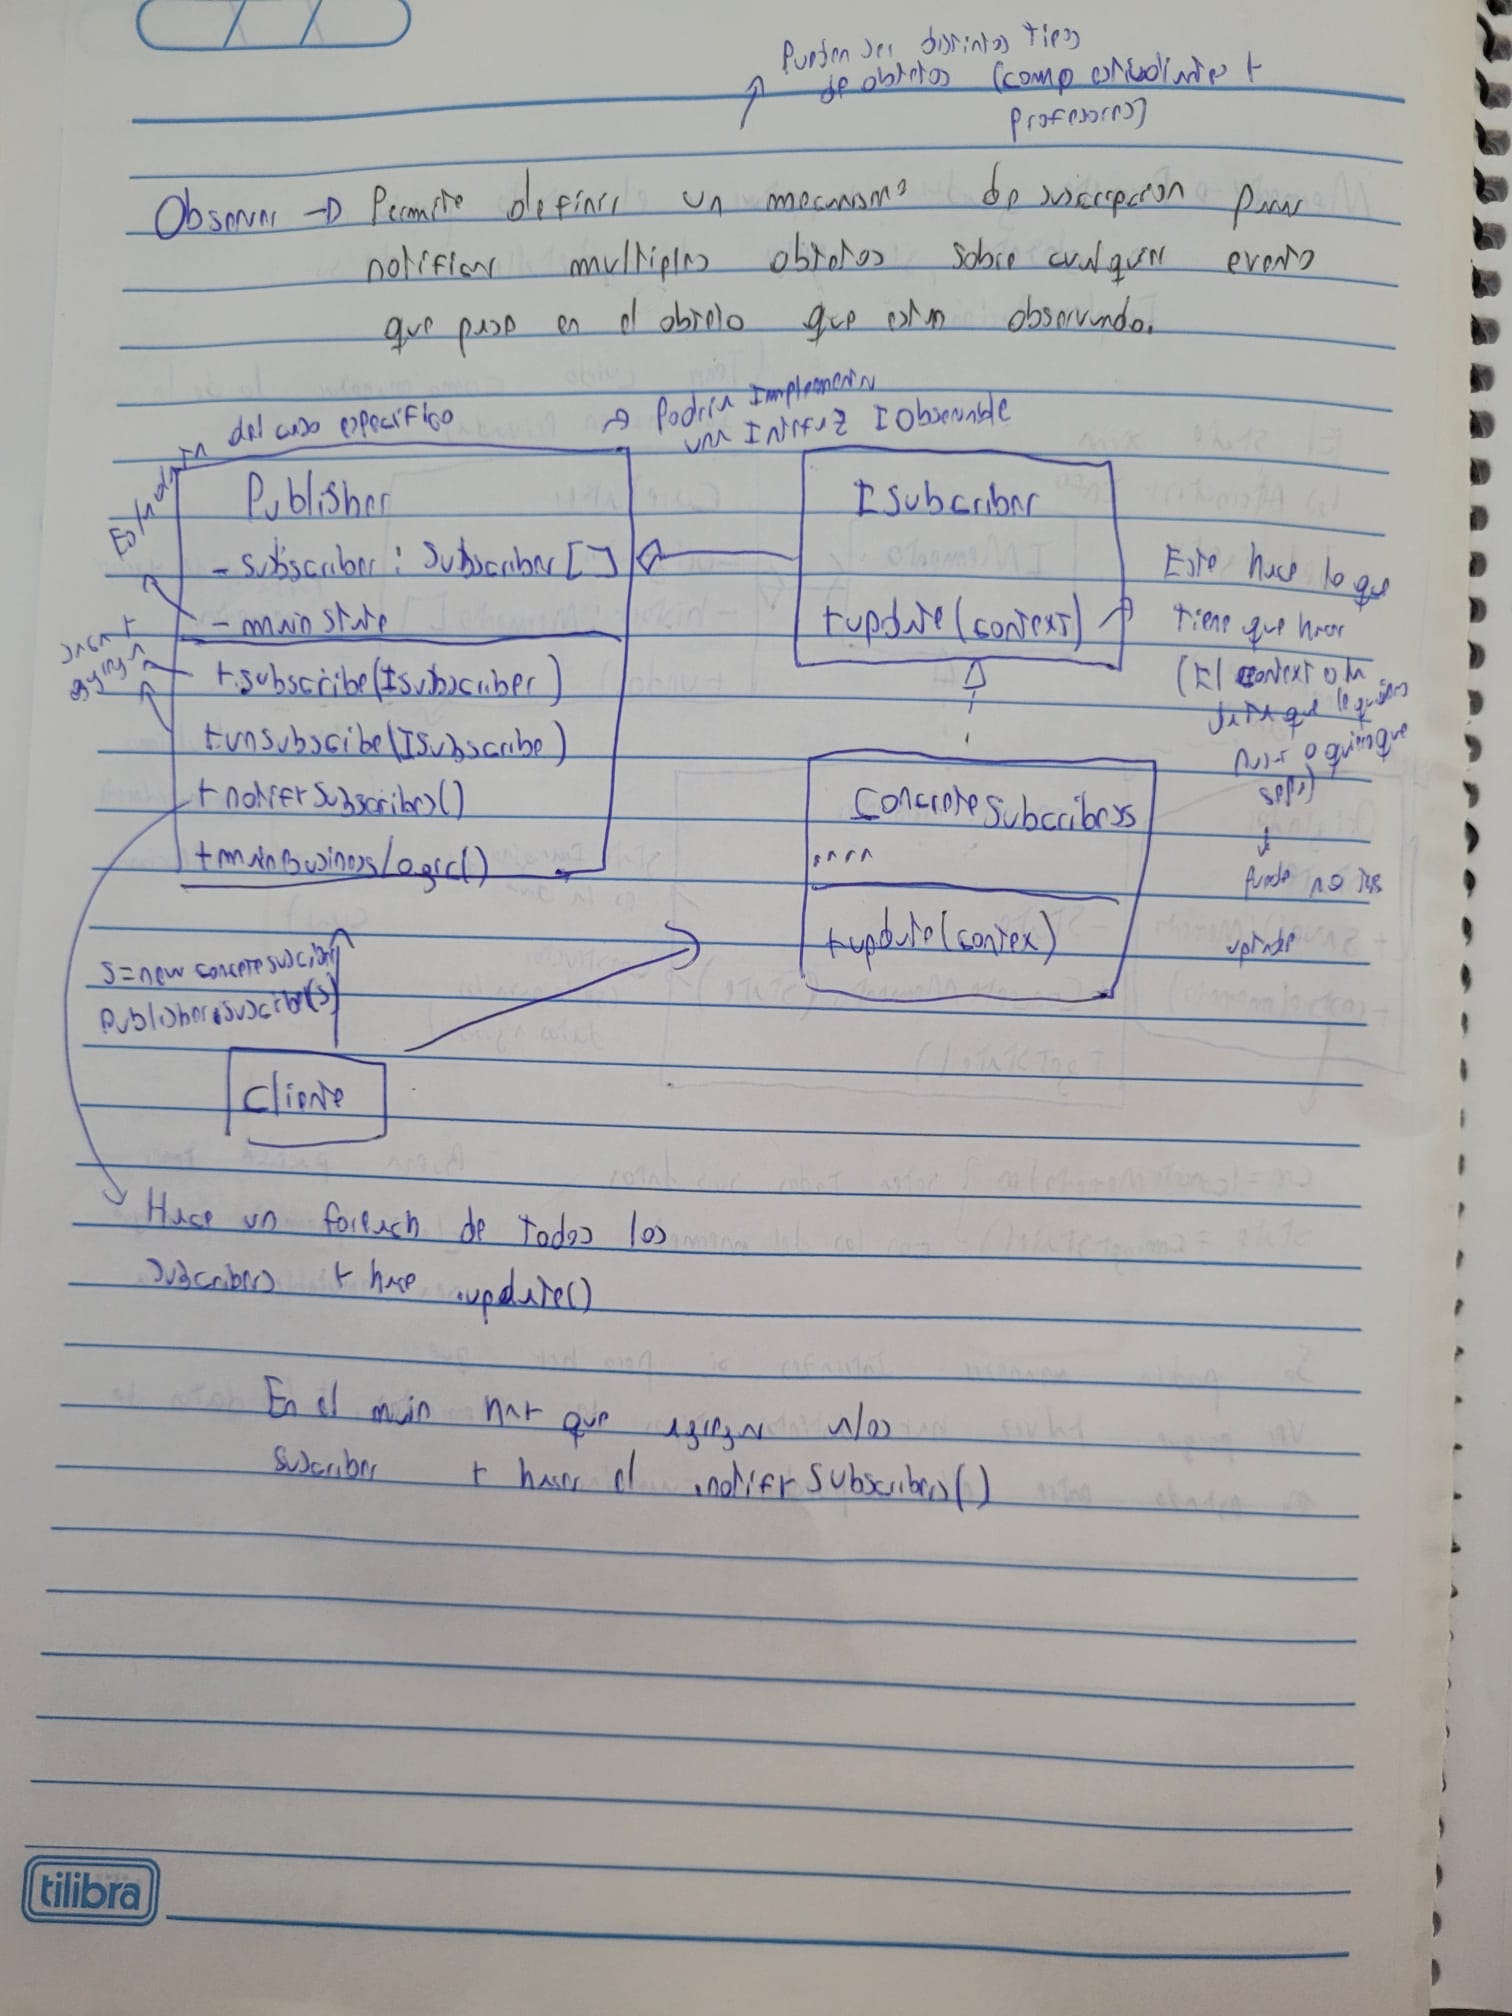 Pueden ser distintos tipos
de objetos (como estudiantes y
profesores)
Observer → Permite definir un mecanismo de suscripcion para
notificar multiples objetos sobre cualquier evento
que pase en el objeto que estan observando.
Es la data
del caso especifico
→ Podria Implementar
una Interfaz IObservable
Publisher
- subscriber : Subscriber []
- main state
sacar y
agregar
+ subscribe(ISubscriber)
+ unsubscibe(ISubscribe)
+ notifySubscribers()
+ mainBusinessLogic()
ISubscriber
+ update(context)
Este hace lo que
tiene que hacer
(El context o la
data que le quieras
pasar o quieras que
sepa)
puede no ser
update
ConcreteSubscribers
....
+ update(contex)
s = new concretesuscriber
Publisher.suscribe(s)
Cliente
Hace un foreach de todos los
subscribers y hace .update()
En el main hay que agregar a los
suscriber y hacer el .notifySubscribers()
tilibra